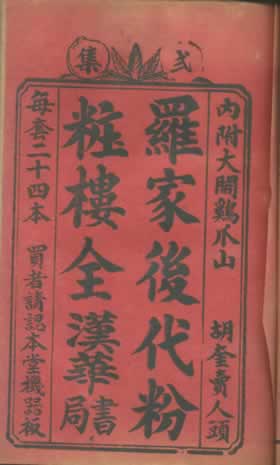 弍集
內附大鬧鷄爪山　胡奎賣人頭
羅家後代粉
粧樓全漢華書局
每套二十四本　買者請認本堂機器板